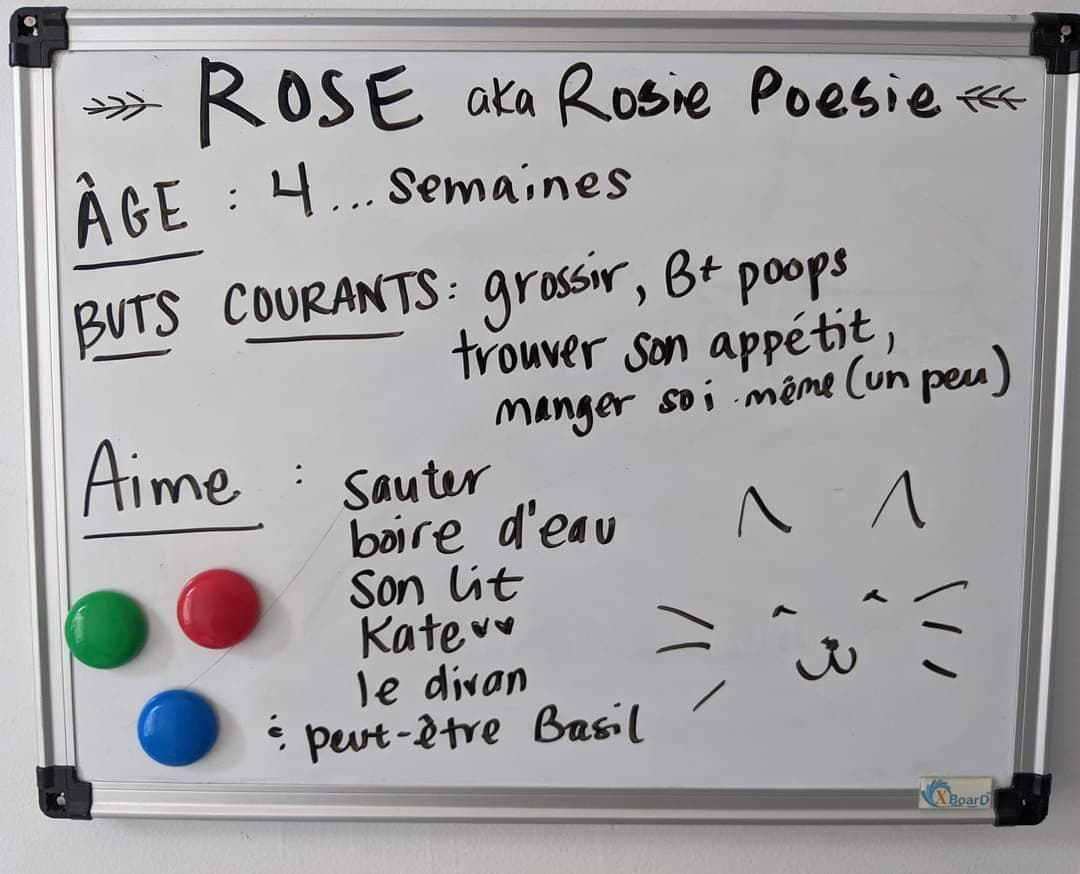 ROSE aka Rosie Poesie
ÂGE : 4... semaines
BUTS COURANTS: grossir, B+ poops
trouver son appétit,
manger soi-même (un peu)
Aime : sauter
boire d'eau
son lit
Kate
le divan
: peut-être Basil
XBoarD